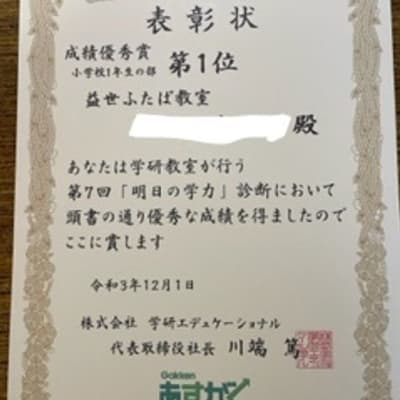 表彰状
成績優秀賞
小学校1年生の部 第1位
益世ふたば教室
殿
あなたは学研教室が行う
第7回「明日の学力」診断において
頭書の通り優秀な成績を得ましたので
ここに賞します
令和3年12月1日
株式会社 学研エデュケーショナル
代表取締役社長 川端 篤
Gakken
あすがく